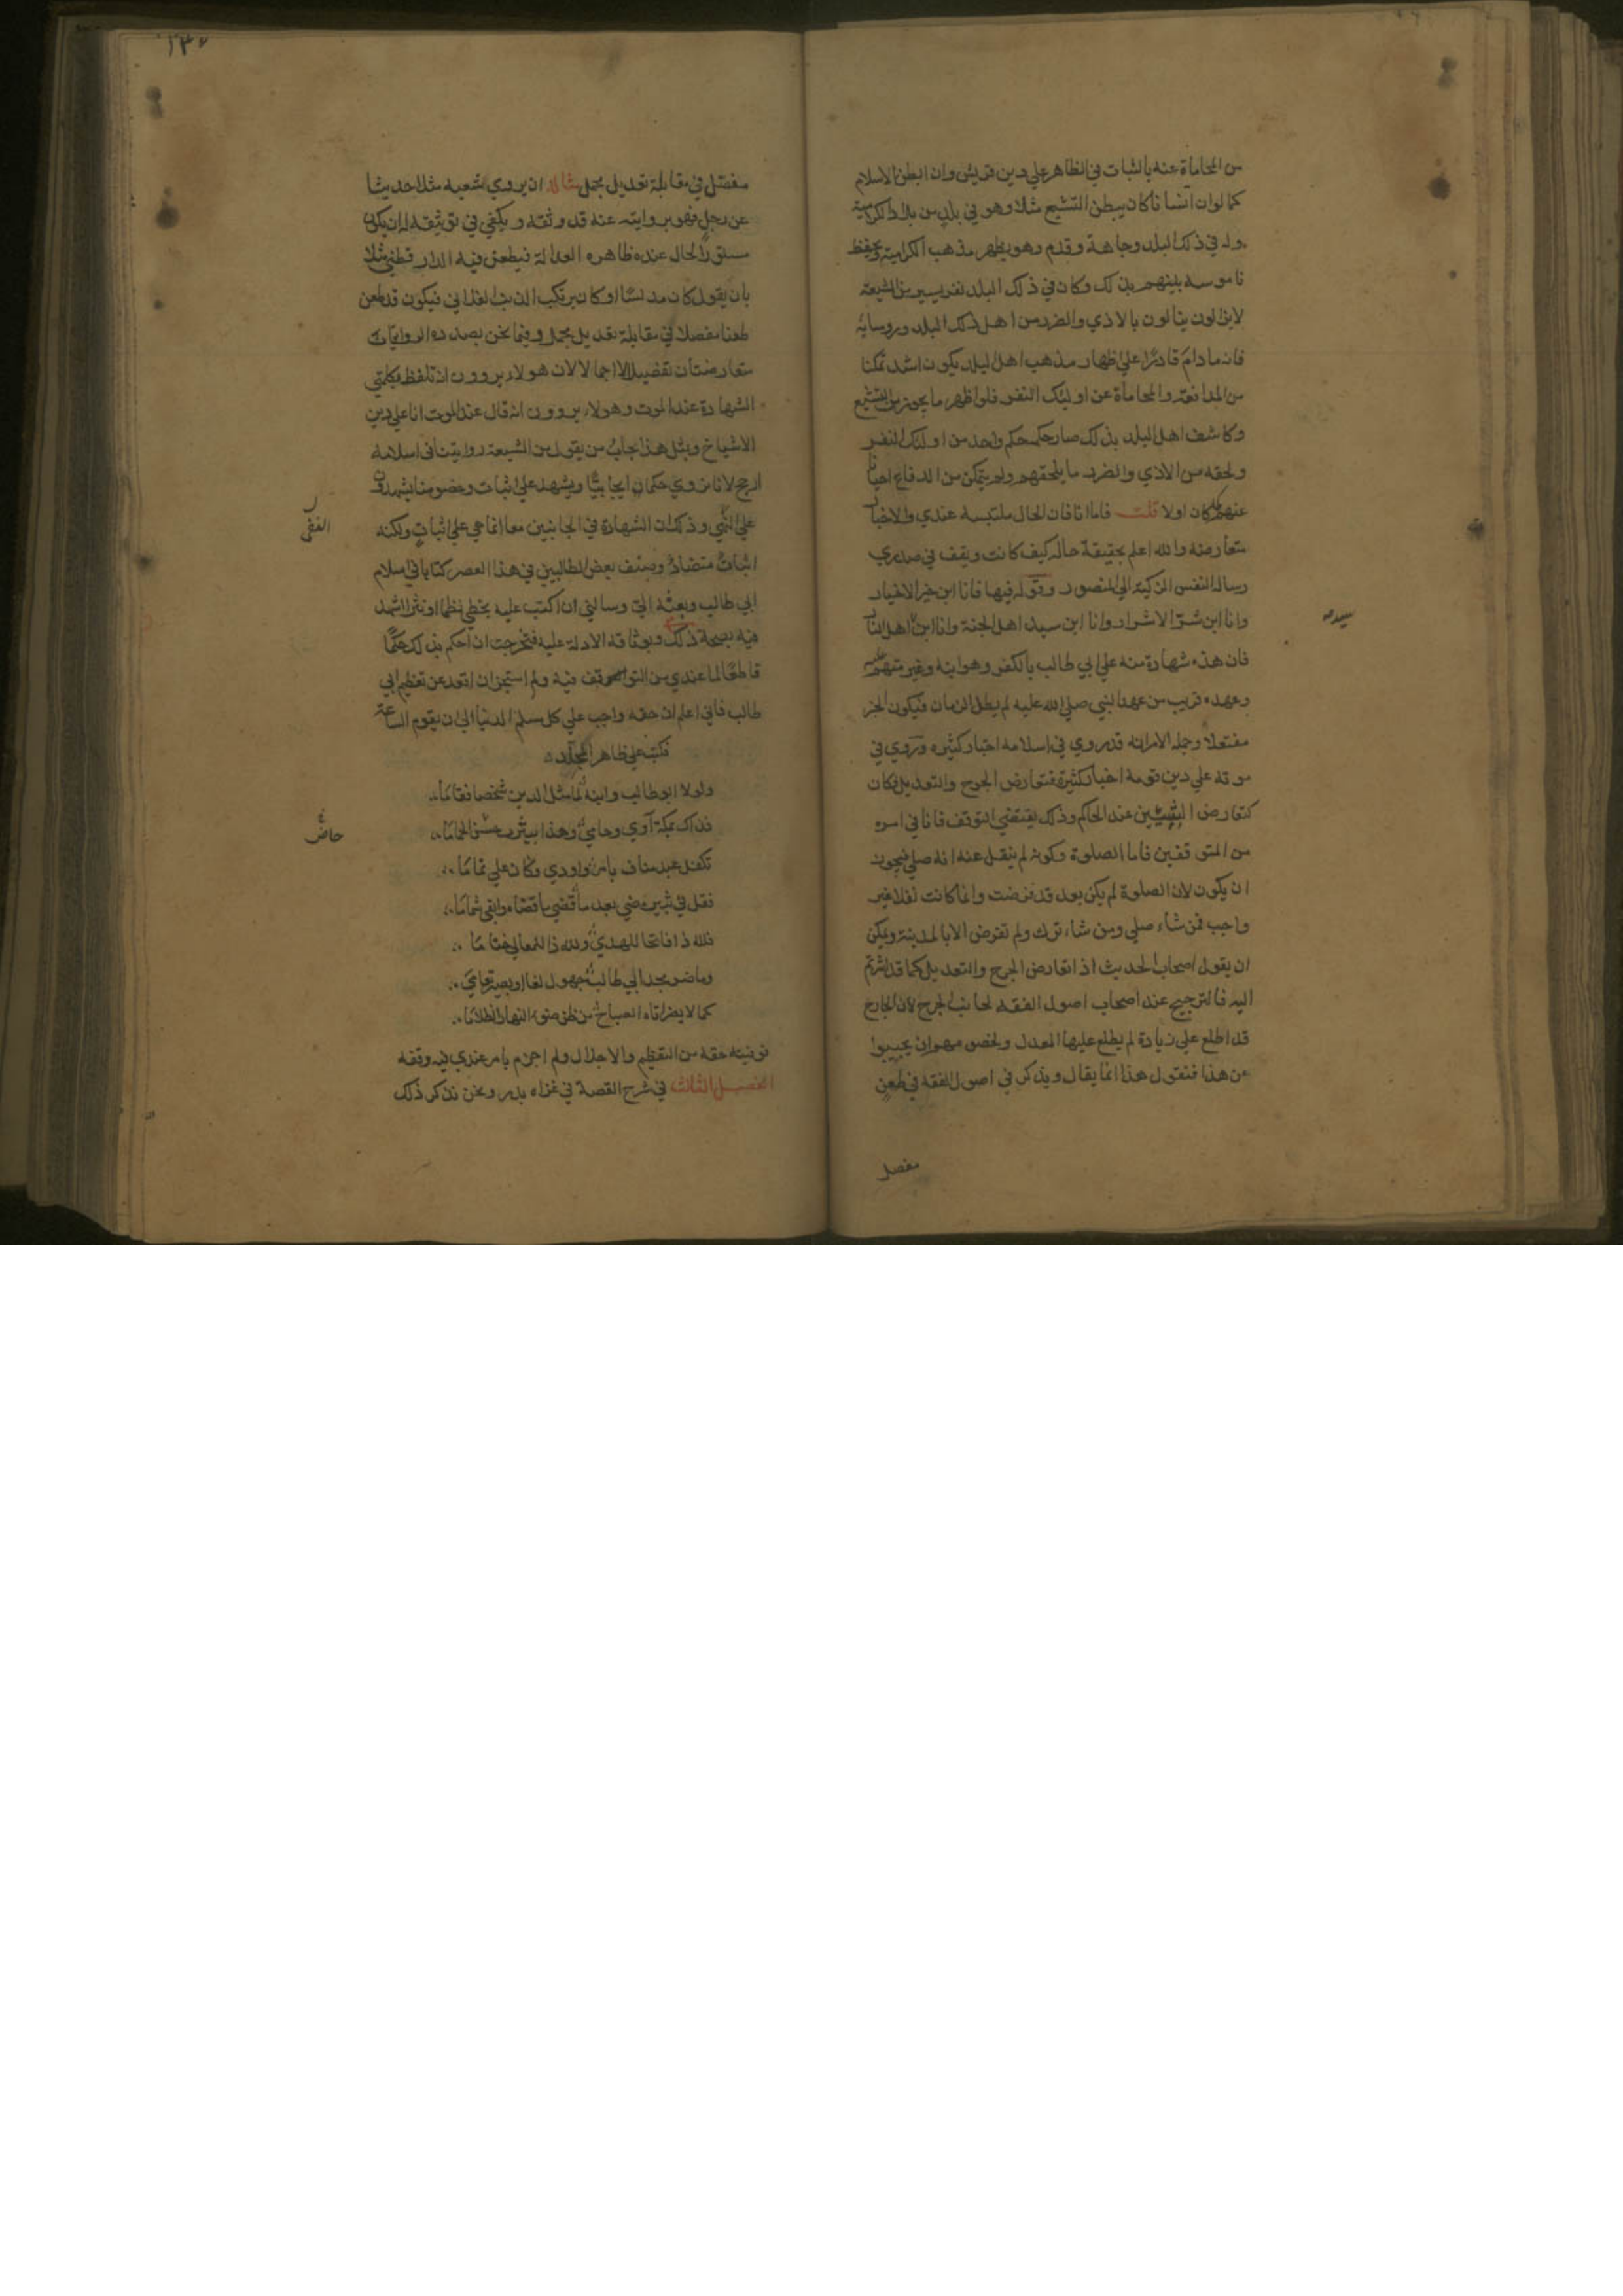 من المحاماة عنه بالثبات في الظاهر علي دين قريش وان ابطن الاسلام
كما لو ان انسانا كان يبطن التشيع مثلا وهو في بلد من بلاد الكرامية
وله في ذلك البلد وجاهة وقدم وهو يظهر مذهب الكرامية ويحفظ
ناموسه بينهم بذلك وكان في ذلك البلد نفر يسير من الشيعة
لا يزالون ينالون بالاذي والضرر من اهل ذلك البلد وروسايه
فانه ما دام قادرا علي اظهار مذهب اهل البلد يكون اشد تمكنا
من المدافعة والمحاماة عن اوليك النفر فلو اظهر ما يجوز من التشيع
وكاشف اهل البلد بذلك صار حكمه حكم واحد من اوليك النفر
ولحقه من الاذي والضرر ما يلحقهم ولم يتمكن من الدفاع احيانا
عنهم كما كان اولا قلت فاما انا فان الحال ملتبسة عندي والاخبار
متعارضة والله اعلم بحقيقة حاله كيف كانت ويقف في صدري
رسالة النفس الزكية الي المنصور وقوله فيها فانا ابن خير الاخيار
وانا ابن شر الاشرار وانا ابن سيد اهل الجنة وانا ابن اهل النار
سيد
فان هذه شهادة منه علي ابي طالب بالكفر وهو ابنه وغير متهم عليه
وعهده قريب من عهد النبي صلي الله عليه لم يطل الزمان فيكون الخبر
مفتعلا وجملة الامر انه قد روي في اسلامه اخبار كثيره وروي في
موته علي دين قومه اخبار كثيرة فتعارض الجرح والتعديل فكان
كتعارض البينتين عند الحاكم وذلك يقتضي التوقف فانا في امره
من المتوقفين فاما الصلوة وكونه لم ينقل عنه انه صلي فيجوز
ان يكون لان الصلوة لم يكن بعد قد فرضت وانما كانت نفلا غير
واجب فمن شاء صلي ومن شاء ترك ولم تفرض الا بالمدينة ويمكن
ان يقول اصحاب الحديث اذا تعارض الجرح والتعديل كما قد اشرتم
اليه فالترجيح عند اصحاب اصول الفقه لجانب الجرح لان الجارح
قد اطلع علي زيادة لم يطلع عليها المعدل ولخصومهم ان يجيبوا
عن هذا فنقول هذا انما يقال ويذكر في اصول الفقه في طعن
مفصل
١٣٧
مفصل في مقابلة تعديل مجمل مثاله ان يروي شعبة مثلا حديثا
عن رجل فهو بروايته عنه قد وثقه ويكفي في توثيقه له ان يكون
مستور الحال عنده ظاهره العدالة فيطعن فيه الدارقطني مثلا
بان يقول كان مدلسا او كان يرتكب الذنب الفلاني فيكون قد طعن
طعنا مفصلا في مقابلة تعديل مجمل وفيما نحن بصدده الروايتان
متعارضتان تفصيلا لا اجمالا لان هولاء يروون انه تلفظ بكلمتي
الشهادة عند الموت وهولاء يروون انه قال عند الموت انا علي دين
الاشياخ وبمثل هذا يجاب من يقول من الشيعة روايتنا في اسلامه
ارجح لانا نروي حكما ايجابيا ويشهد علي اثبات وخصومنا يشهدون
علي النفي وذلك ان الشهادة في الجانبين معا انما هي علي اثبات ولكنه
النفي
اثبات متضاد وصنف بعض الطالبيين في هذا العصر كتابا في اسلام
ابي طالب وبعثه الي وسالني ان اكتب عليه بخطي نظما او نثرا اشهد
فيه بصحة ذلك وبوثاقة الادلة عليه فتحرجت ان احكم بذلك حكما
قاطعا لما عندي من التوقف فيه ولم استجز ان اقعد عن تعظيم ابي
طالب فاني اعلم ان حقه واجب علي كل مسلم في الدنيا الي ان يقوم الساعة
فكتبت علي ظاهر المجلد
ولولا ابو طالب وابنه لما مثل الدين شخصا فقاما
فذاك بمكة آوي وحامي وهذا بيثرب جس الحماما
خاض
تكفل عبد مناف بامر واودي وكان علي تماما
فقل في ثبير مضي بعد ما قضي ما قضاه وابقي شماما
فلله ذا فاتحا للهدي ولله ذا للمعالي ختاما
وما ضر مجد ابي طالب جهول لغا او بصير تعامي
كما لا يضر اياة الصباح من ظن ضوء النهار الظلاما
فوفيته حقه من التعظيم والاجلال ولم اجزم بامر عندي فيه وقفة
الفصل الثالث في شرح القصة في غزاه بدر ونحن نذكر ذلك